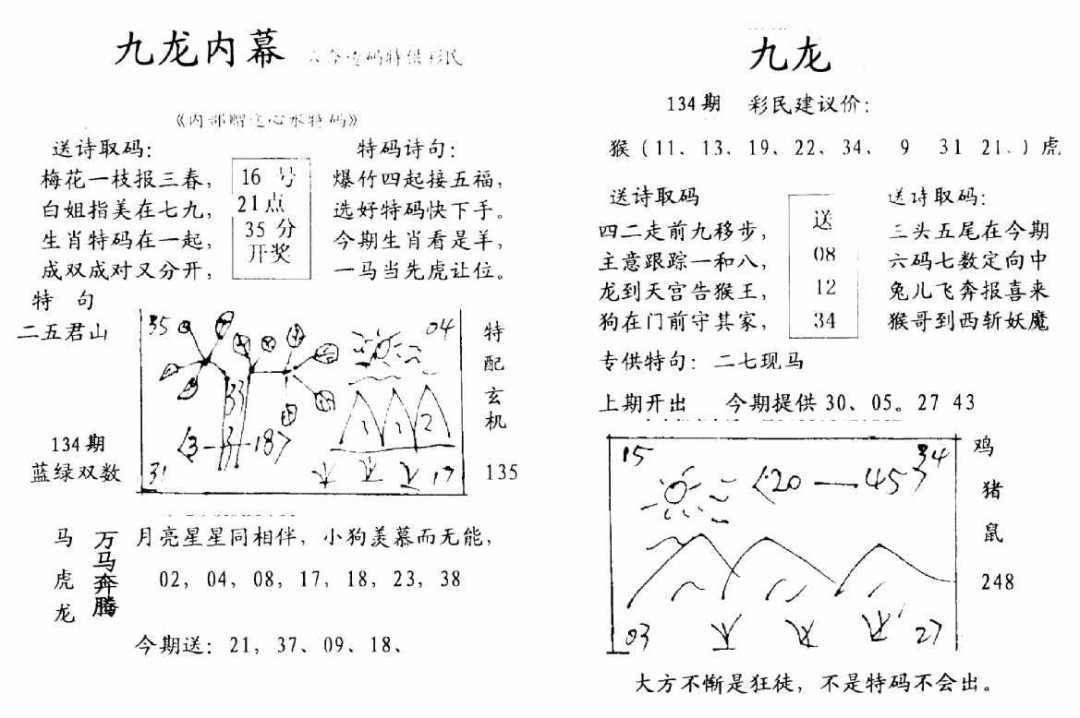 九龙内幕
《内部赠送心水特码》
送诗取码：
梅花一枝报三春，
白姐指美在七九，
生肖特码在一起，
成双成对又分开，
16 号
21点
35 分
开奖
特码诗句：
爆竹四起接五福，
选好特码快下手。
今期生肖看是羊，
一马当先虎让位。
特 句
二五君山
134期
蓝绿双数
35
04
33
31
17
特配玄机
135
马虎龙
万马奔腾
月亮星星同相伴，小狗羡慕而无能，
02，04，08，17，18，23，38
今期送：21，37、09、18、
九龙
134期 彩民建议价：
猴（11、13、19、22、34、 9 31 21.）虎
送诗取码
四二走前九移步，
主意跟踪一和八，
龙到天宫告猴王，
狗在门前守其家，
送
08
12
34
送诗取码：
三头五尾在今期
六码七数定向中
兔儿飞奔报喜来
猴哥到西斩妖魔
专供特句：二七现马
上期开出 今期提供 30、05。27 43
15
34
20 — 45
03
27
鸡
猪
鼠
248
大方不惭是狂徒，不是特码不会出。